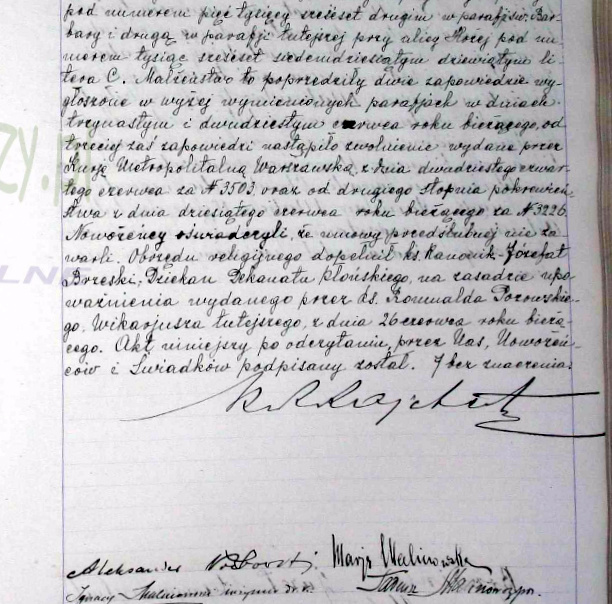 pod numerem pięć tysięcy sześćset drugim w parafji św. Bar-
bary i drugą w parafji tutejszej przy ulicy Hożej pod nu-
merem tysiąc sześćset siedemdziesiątym dziewiątym li-
tera C. Małżeństwo to poprzedziły dwie zapowiedzie wy-
głoszone w wyżej wymienionych parafjach w dniach
trzynastym i dwudziestym czerwca roku bieżącego, od
trzeciej zaś zapowiedzi nastąpiło zwolnienie wydane przez
Kurję Metropolitalną Warszawską z dnia dwudziestego czwar-
tego czerwca za N 3503 oraz od drugiego stopnia pokrewień-
stwa z dnia dziesiątego czerwca roku bieżącego za N 3226.
Nowożeńcy oświadczyli, że umowy przedślubnej nie za
warli. Obrzędu religijnego dopełnił ks. Kanonik Józefat
Brzeski, Dziekan Dekanatu Płońskiego, na zasadzie upo
ważnienia wydanego przez ks. Romualda
go, Wikarjusza tutejszego, z dnia 26 czerwca roku bieżą-
cego. Akt niniejszy po odczytaniu, przez Nas, Nowożeń-
ców i Świadków podpisany został. 7 bez znaczenia.
Aleksander Marja Malinowska
Ignacy Malinowski
ZY.PL
LNG